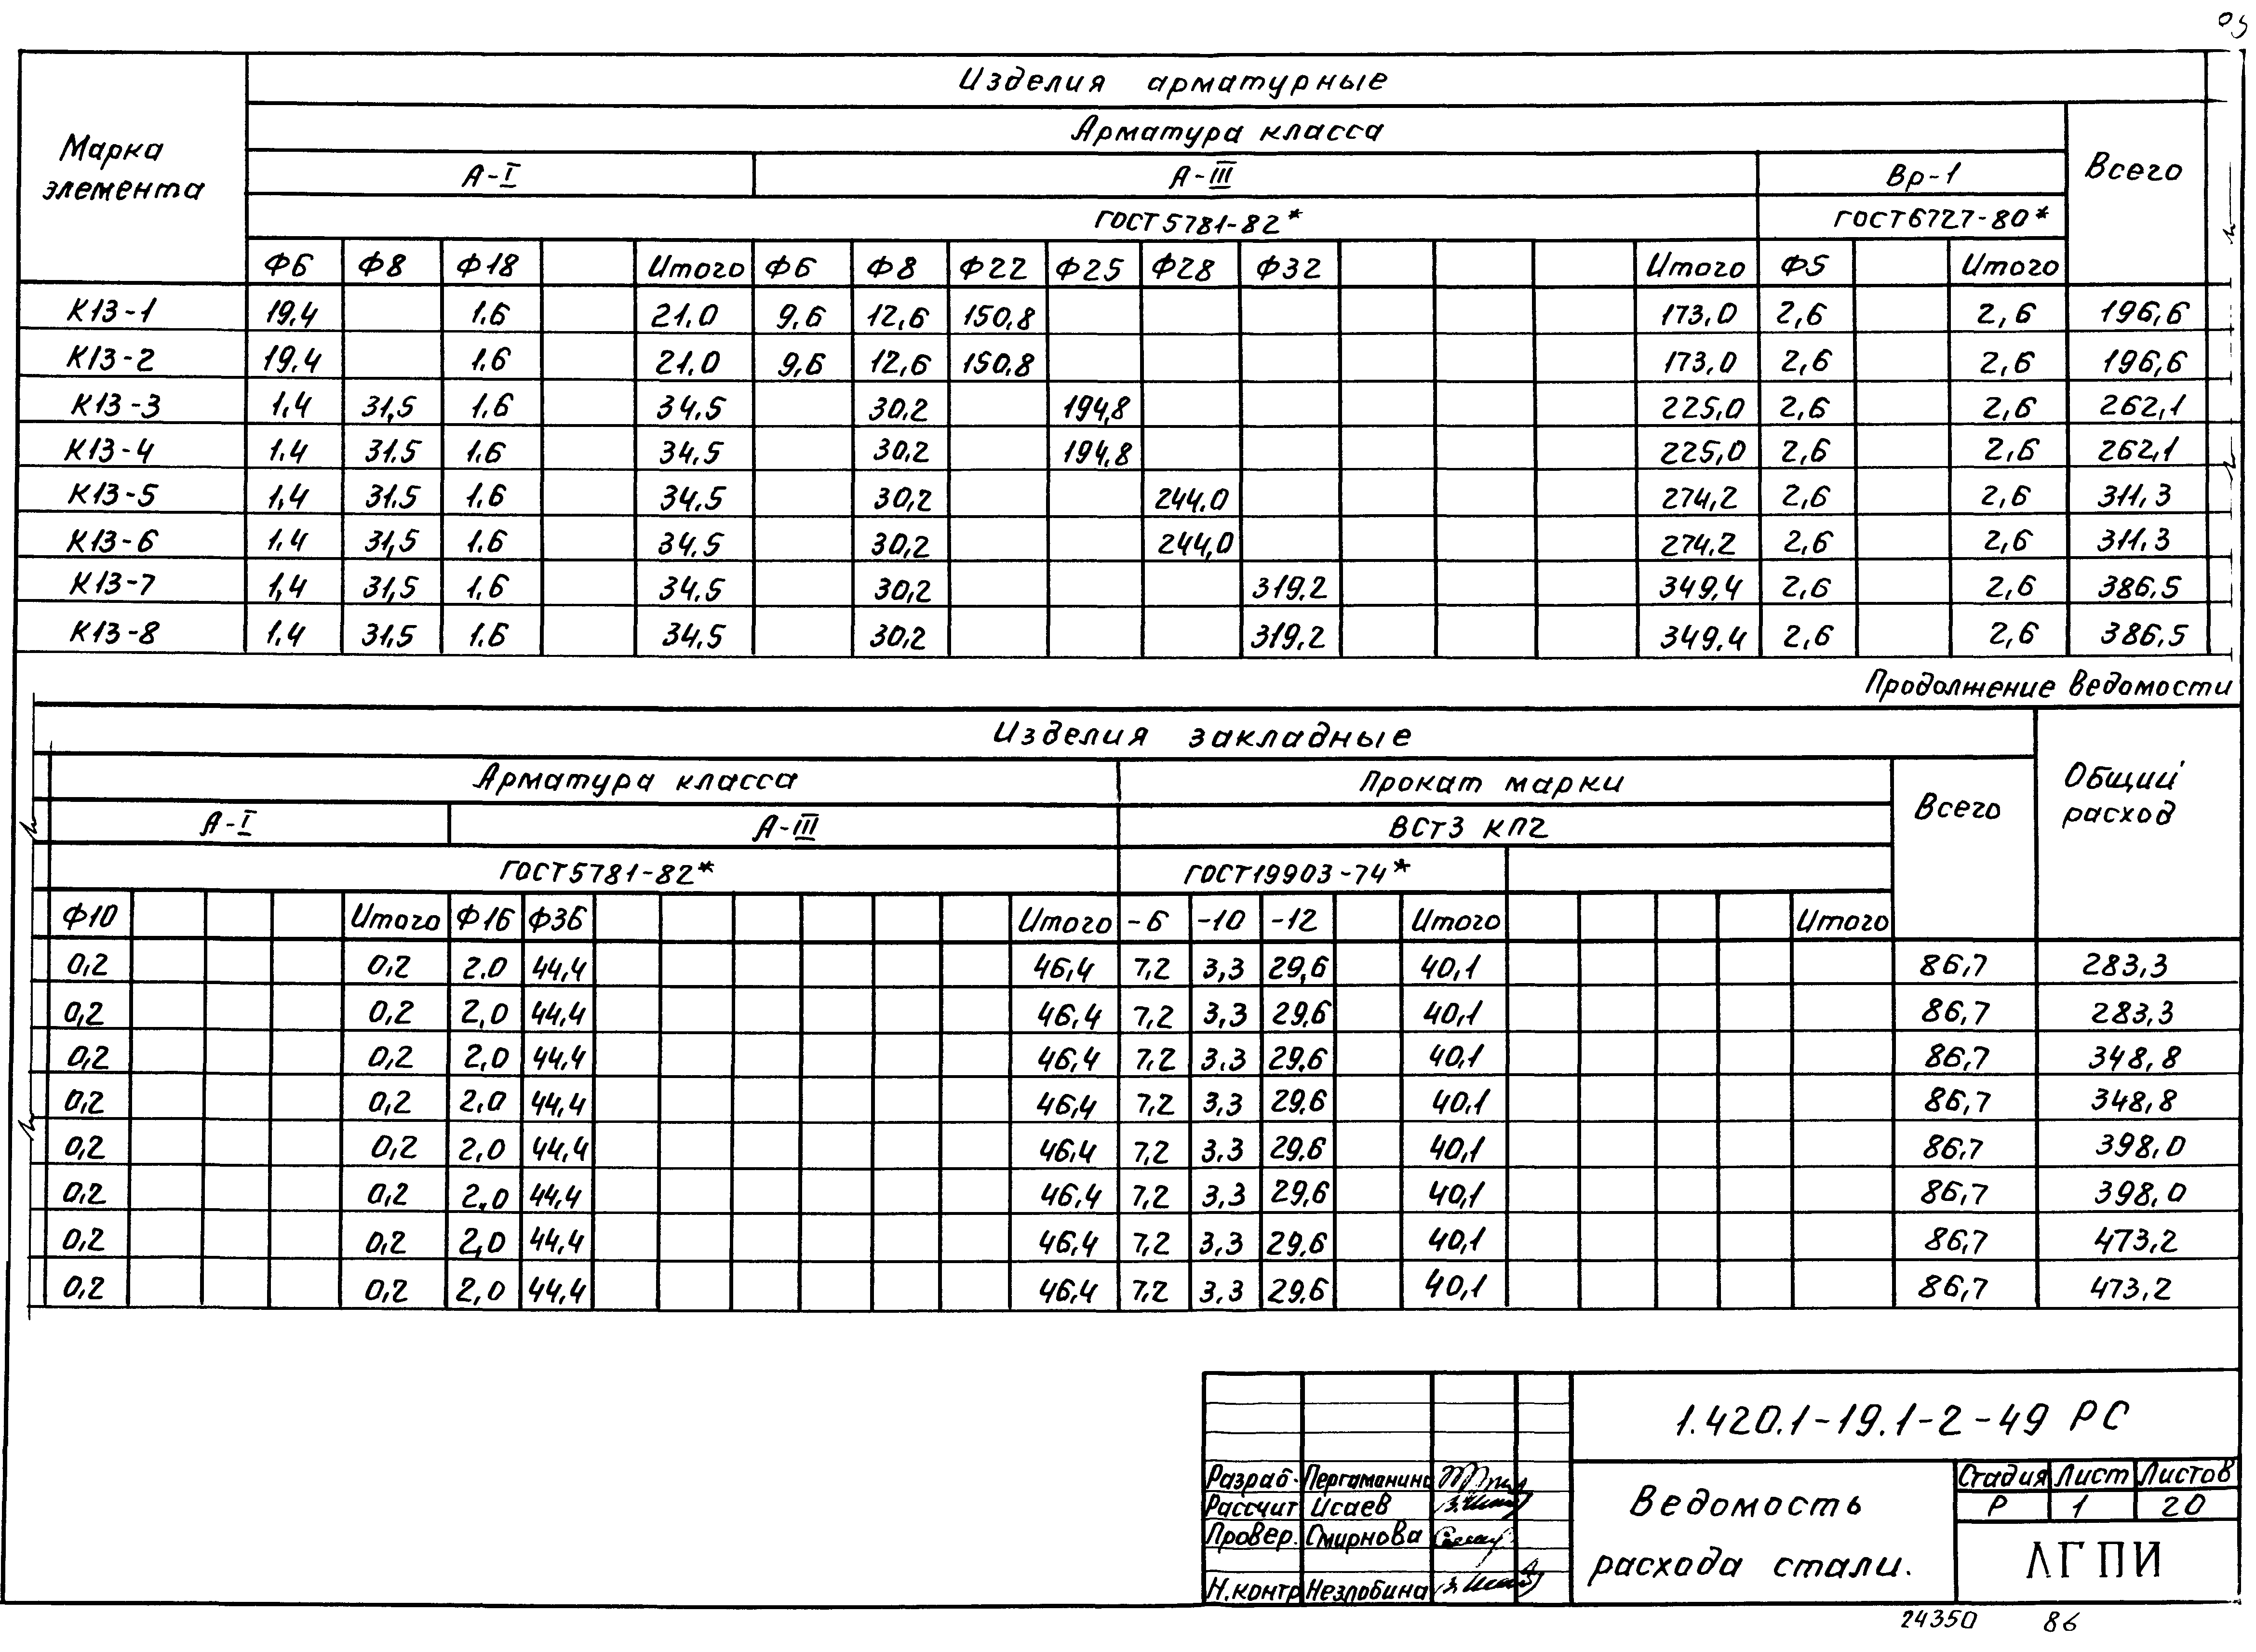 Марка элемента
Изделия арматурные
Арматура класса
Всего
А-I А-III Вр-1
ГОСТ 5781-82* ГОСТ 6727-80*
Ф6 Ф8 Ф18 Итого Ф6 Ф8 Ф22 Ф25 Ф28 Ф32 Итого Ф5 Итого
К13-1 19,4 1.6 21.0 9,6 12,6 150,8 173,0 2,6 2,6 196,6
К13-2 19,4 1.6 21.0 9,6 12,6 150,8 173,0 2,6 2,6 196,6
К13-3 1,4 31,5 1,6 34.5 30.2 194,8 225,0 2,6 2,6 262,1
К13-4 1.4 31.5 1.6 34.5 30,2 194,8 225,0 2,6 2,6 262,1
К13-5 1,4 31.5 1,6 34.5 30,2 244.0 274,2 2,6 2,6 311,3
К13-6 1.4 31,5 1.6 34.5 30,2 244,0 274,2 2,6 2,6 311,3
К13-7 1,4 31,5 1.6 34.5 30,2 319,2 349,4 2,6 2,6 386,5
К13-8 1,4 31,5 1.6 34,5 30,2 319,2 349,4 2,6 2,6 386,5
Продолжение ведомости
Изделия закладные
Общий расход
Арматура класса Прокат марки Всего
А-I А-III ВСт3 КП2
ГОСТ 5781-82* ГОСТ 19903-74*
Ф10 Итого Ф16 Ф36 Итого -6 -10 -12 Итого Итого
0,2 0,2 2.0 44,4 46,4 7,2 3,3 29,6 40,1 86,7 283,3
0,2 0,2 2,0 44,4 46,4 7,2 3,3 29,6 40,1 86,7 283,3
0,2 0,2 2,0 44,4 46,4 7,2 3.3 29,6 40,1 86,7 348,8
0,2 0,2 2,0 44,4 46,4 7,2 3.3 29,6 40,1 86,7 348,8
0,2 0,2 2,0 44,4 46,4 7,2 3,3 29,6 40,1 86,7 398,0
0,2 0,2 2,0 44,4 46,4 7,2 3,3 29,6 40,1 86,7 398,0
0,2 0,2 2,0 44,4 46,4 7,2 3,3 29,6 40,1 86,7 473,2
0,2 0,2 2,0 44,4 46,4 7,2 3,3 29,6 40,1 86,7 473,2
1.420.1-19.1-2-49 РС
Разраб. Пергаманина
Рассчит Исаев
Провер. Смирнова
Н.контр Незлобина
Ведомость
расхода стали.
Стадия Лист Листов
Р 1 20
ЛГПИ
24350 86